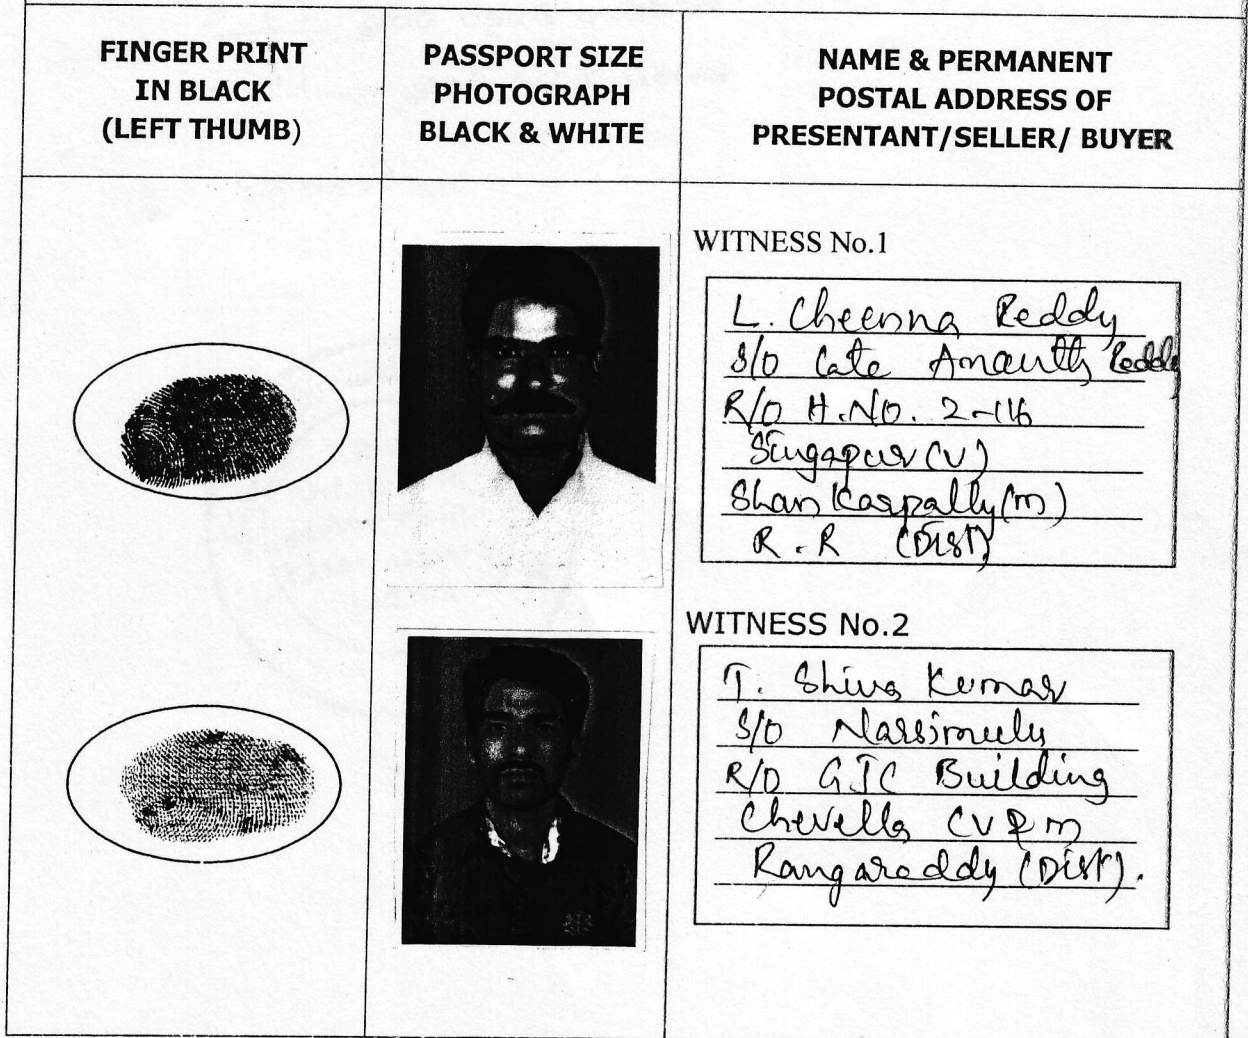 FINGER PRINT
IN BLACK
(LEFT THUMB)
PASSPORT SIZE
PHOTOGRAPH
BLACK & WHITE
NAME & PERMANENT
POSTAL ADDRESS OF
PRESENTANT/SELLER/ BUYER
WITNESS No.1
L. Cheenna Reddy
S/o Late Ananth Reddy
R/o H.No. 2-116
Singapur (V)
Shankarpally (m)
R.R (Dist)
WITNESS No.2
T. Shiva Kumar
S/o Narsimulu
R/o GJC Building
Chevella (V & m
Rangareddy (Dist).